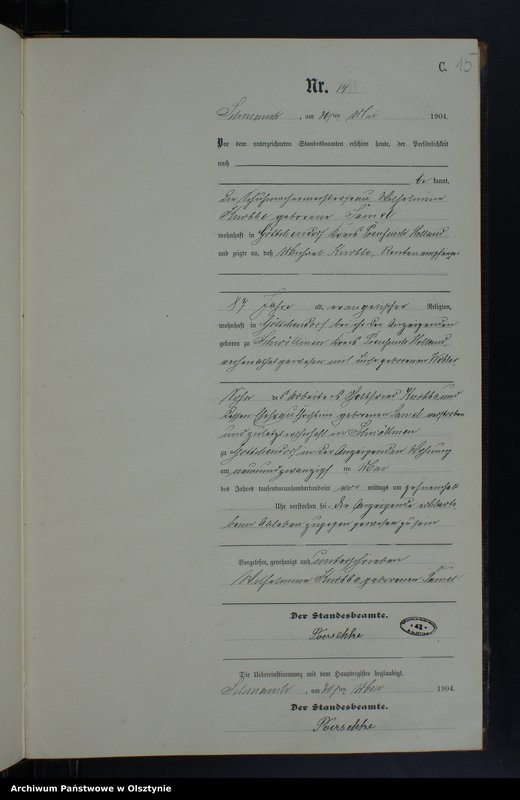 C. 15
Nr. 14
Schmauch, am 30ten Mai 1904.
Vor dem unterzeichneten Standesbeamten erschien heute, der Persönlichkeit
nach
be kannt,
die Schuhmachermeisterfrau Wilhelmine
Knobbe geborene Samel
wohnhaft in Göttchendorf Kreis Preußisch Holland
und zeigte an, daß Michael Knobbe, Rentenempfänger
87 Jahre alt, evangelischer Religion,
wohnhaft in Göttchendorf bei der Anzeigenden
geboren zu Kreis Preußisch Holland,
verheirathet gewesen mit geborenen
Sohn des Arbeiters Gottfried Knobbe und
dessen Ehefrau Christine geborenen Samel verstorben
und zuletzt wohnhaft in
zu Göttchendorf in der Anzeigenden Wohnung
am neunundzwanzigsten Mai
des Jahres tausendneunhundertundvier vor mittags um zehneinhalb
Uhr verstorben sei. Die Anzeigende erklärte
beim Ableben zugegen gewesen zu sein
Vorgelesen, genehmigt und unterschrieben
Wilhelmine Knobbe geborenen Samel
Der Standesbeamte.
Poerschke
42
Die Uebereinstimmung mit dem Hauptregister beglaubigt.
Schmauch, am 30ten Mai 1904.
Der Standesbeamte.
Poerschke
Archiwum Państwowe w Olsztynie